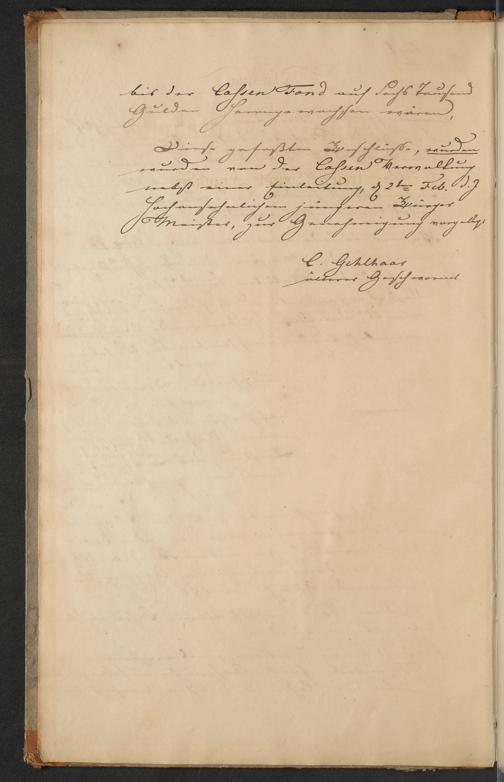 bis der Cassen Fond auf Sechs Tausend
Gulden herangewachsen wären,
Diese gefaßten Beschlüße, wurden
wurden von der Cassen Verwaltung
nebst einer Einleitung, d 2t Feb. d. J
Hochansehnlichen jüngeren Bürger
Meister, zur Genehmigung vorgelegt
C. Gehlhaar
älterer Geschworener